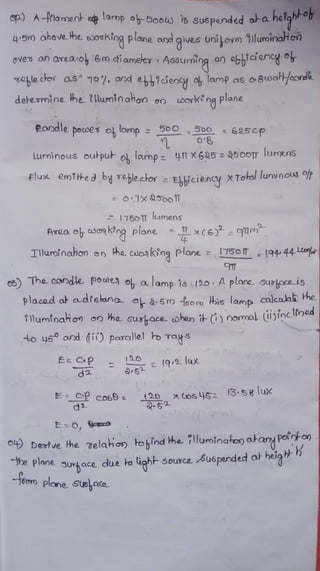 02) A-filament lamp of 500w is suspended at a height of
4.5m above the working plane and gives uniform illumination
over an area of 6m diameter. Assuming an efficiency of
reflector as 70%. and efficiency of lamp as 0.8watt/candle
determine the illumination on working plane
Candle power of lamp = 500/η = 500/0.8 = 625cp
Luminous output of lamp = 4π×625 = 2500π lumens
Flux emitted by reflector = Efficiency × Total luminous o/p
= 0.7×2500π
= 1750π lumens
Area of working plane = π/4 ×(6)² = 9πm²
Illumination on the working plane = 1750π/9π = 194.44 lum/m²
03) The candle power of a lamp is 120. A plane surface is
placed at a distance of 2.5m from this lamp calculate the
illumination on the surface when it (i) normal (ii) inclined
to 45° and (iii) parallel to rays
E = C.P/d2 = 120/2.5² = 19.2 lux
E = C.P/d² cosθ = 120/2.5² × cos45 = 13.58 lux
E = 0,
04) Derive the relation to find the illumination at any point on
the plane surface due to light source suspended at height 'h'
from plane surface